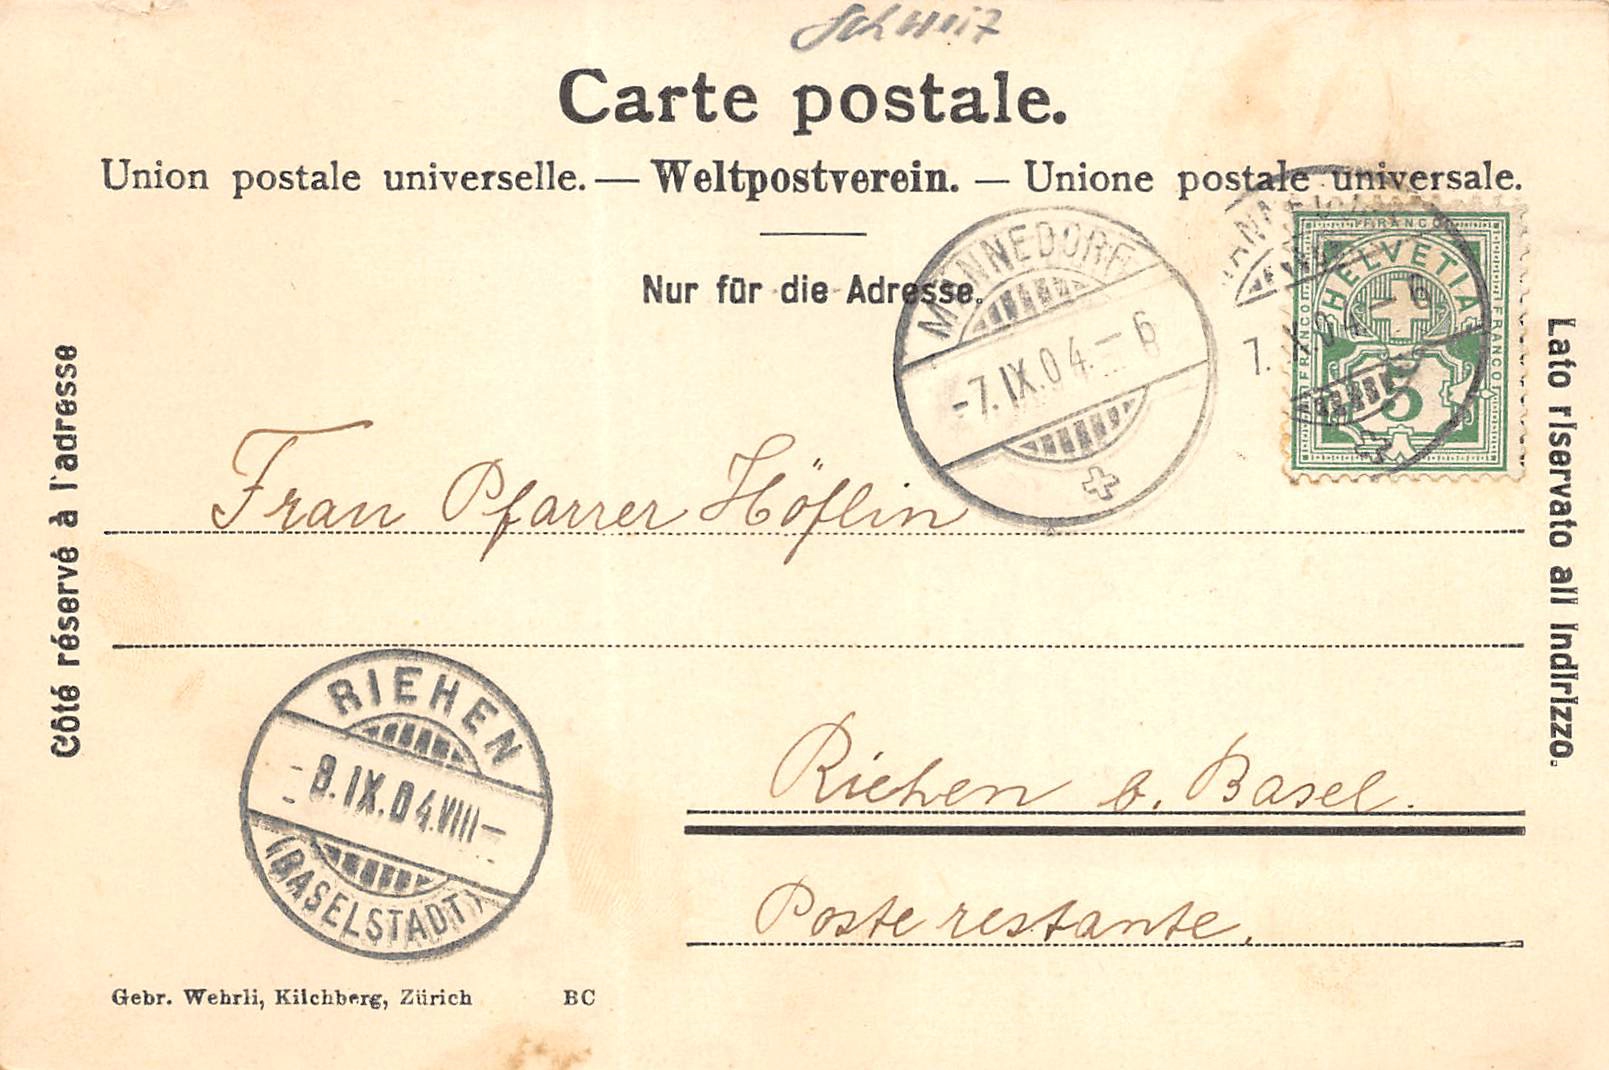 Schweiz
Carte postale.
Union postale universelle. — Weltpostverein. — Unione postale universale.
Nur für die Adresse.
Côté réservé à l'adresse
Lato riservato all indirizzo.
MÄNNEDORF
-7.IX.04.-6
FRANCO
HELVETIA
FRANCO
FRANCO
5
7. IX.04 -6
Frau Pfarrer Höflin
RIEHEN
IX.04.VIII-
(BASELSTADT)
Riehen b. Basel.
Poste restante.
Gebr. Wehrli, Kilchberg, Zürich BC